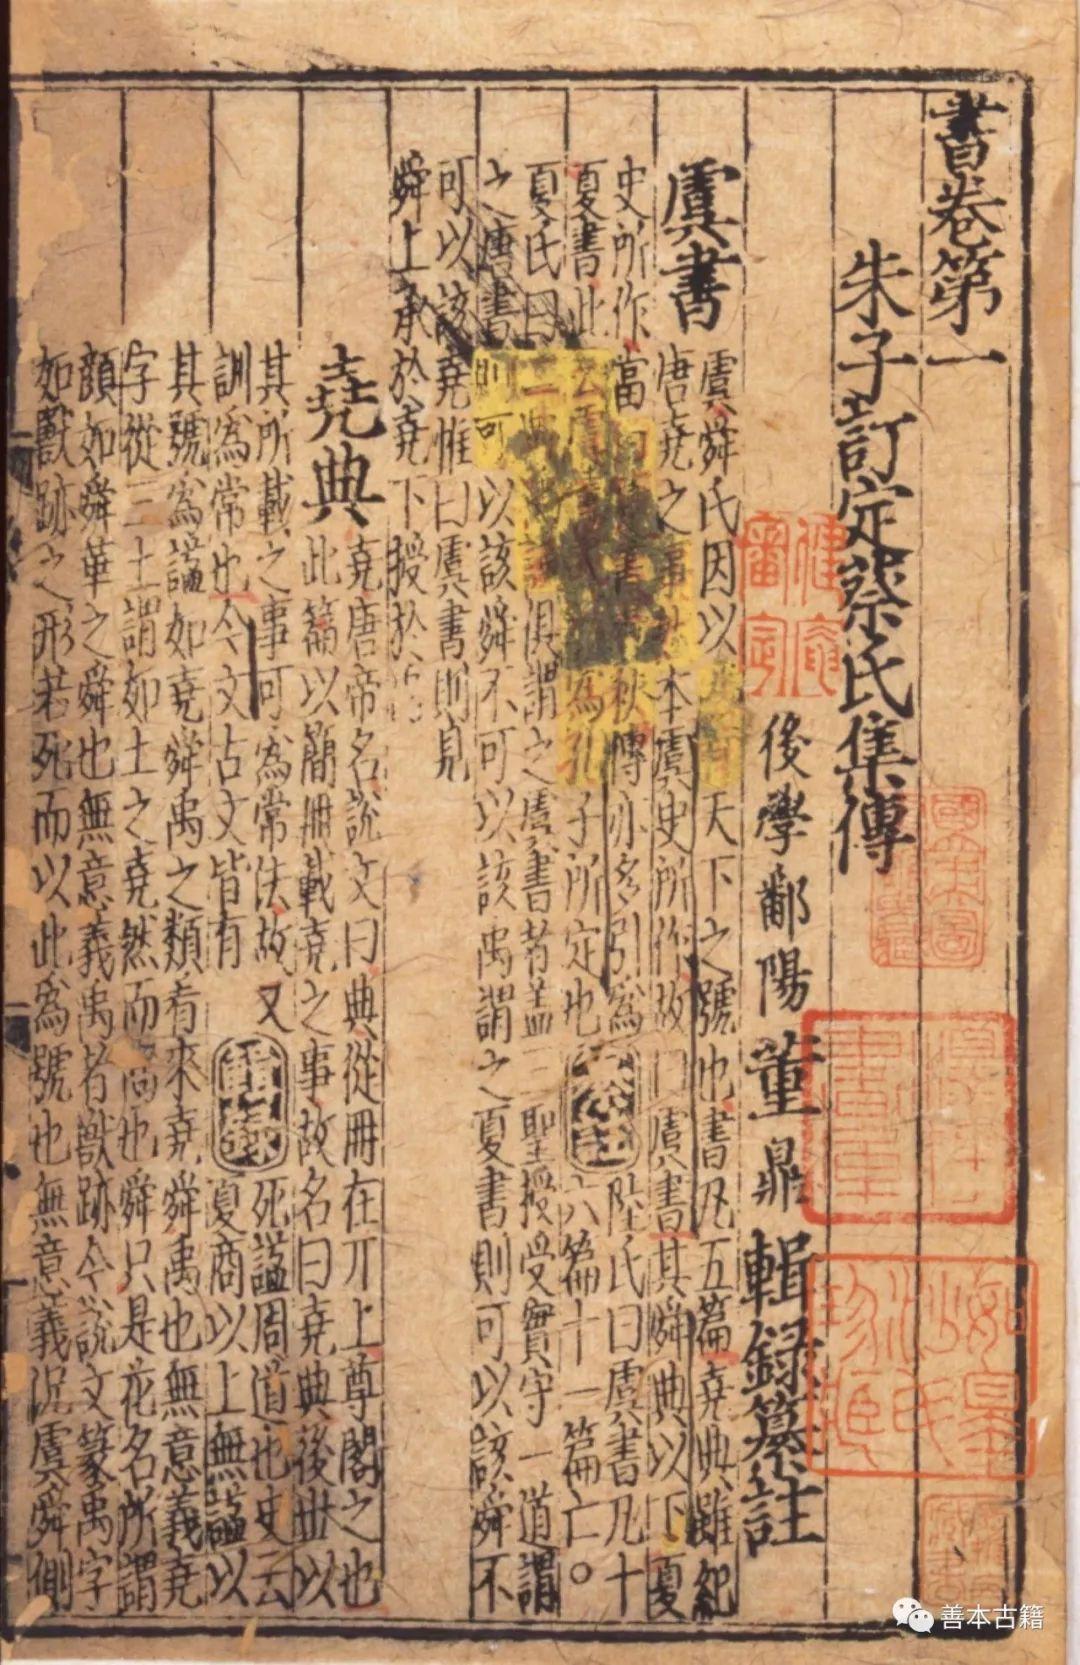 書卷第一
朱子訂定蔡氏集傳
後學鄱陽董鼎輯録纂註
虞書
虞舜氏因以 天下之號也書凡五篇堯典雖紀
唐堯之事 本虞史所作故曰虞書其舜典以下夏
史所作當曰 秋傳亦多引為
夏書此云虞書 為孔子所定也 六篇十一篇亡○
陸氏曰虞書凡十
夏氏曰二典 俱謂之虞書者蓋三聖授受實守一道謂
之唐書則可以該舜不可以該禹謂之夏書則可以該舜不
可以該堯惟曰虞書則見
舜上承於堯下授於
堯典
堯唐帝名說文曰典從冊在丌上尊閣之也
此篇以簡冊載堯之事故名曰堯典後世以
其所載之事可為常法故又
訓為常也今文古文皆有
死謚周道也史云
夏商以上無謚以
其號為謚如堯舜禹之類看來堯舜禹也無意義堯
字從三土謂如土之堯然而高也舜只是花名所謂
顏如舜華之舜也無意義禹者獸跡今說文篆禹字
如獸跡之形若死而以此為號也無意義況虞舜側
善本古籍